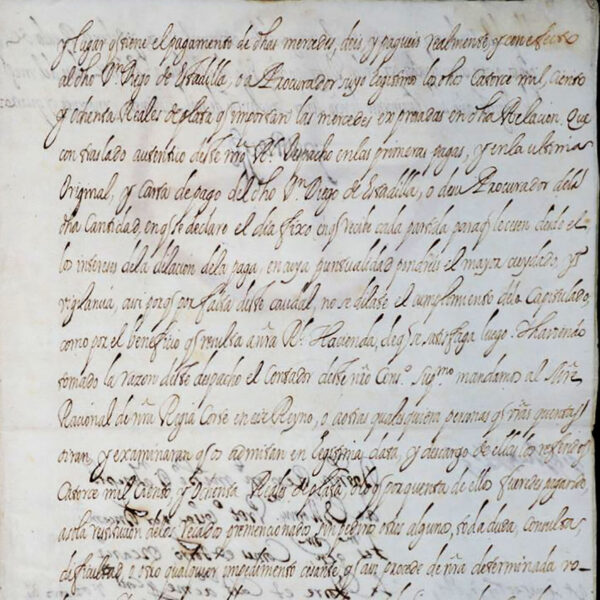 y lugar q̃ tiene el pagamento de dhas mercedes, deis, y pagueis realmente, y con efecto
al dho Dn Diego de Estadilla, o a Procurador suyo legitimo los dhos Catorce mil, ciento
y Ochenta Reales de plata q̃ importan las mercedes expresadas en dha Relacion. Que
con traslado autentico deste mio Rl. Despacho en las primeras pagas, y en la ultima
Original, y Carta de pago del dho Dn Diego de Estadilla, o de su Procurador dela
dha Cantidad, en q̃ se declare el dia fixo en q̃ recibe cada partida para q̃ le cesen desde el
los intereses dela dilacion dela paga, en cuya puntualidad pondreis el mayor cuydado, y
vigilancia, assi porq̃ por falta deste caudal, no se dilate el cumplimento delo Capitulado,
como por el beneficio q̃ resulta a nra Rl. Hacienda, de q̃ se satisfaga luego. Y haviendo
tomado la razon deste despacho el Contador deste nro Cons.o Sup.mo mandamos al Mrē
Racional de nra Regia Corte en esse Reyno, o a otras qualesquiera personas q̃ vras quentas
oiran, y examinaran q̃ os admitan en legitima data, y descargo de ellas los referidos
Catorce mil Ciento y Ochenta Reales de plata, o los q̃ por quenta de ello fueredes pagando
a sola restitucion delos recados premencionados, sin pediros otros alguno, toda duda, consulta,
dificultad, o otro qualquier impedimento cessante q̃ assi procede de nra determinada vo-